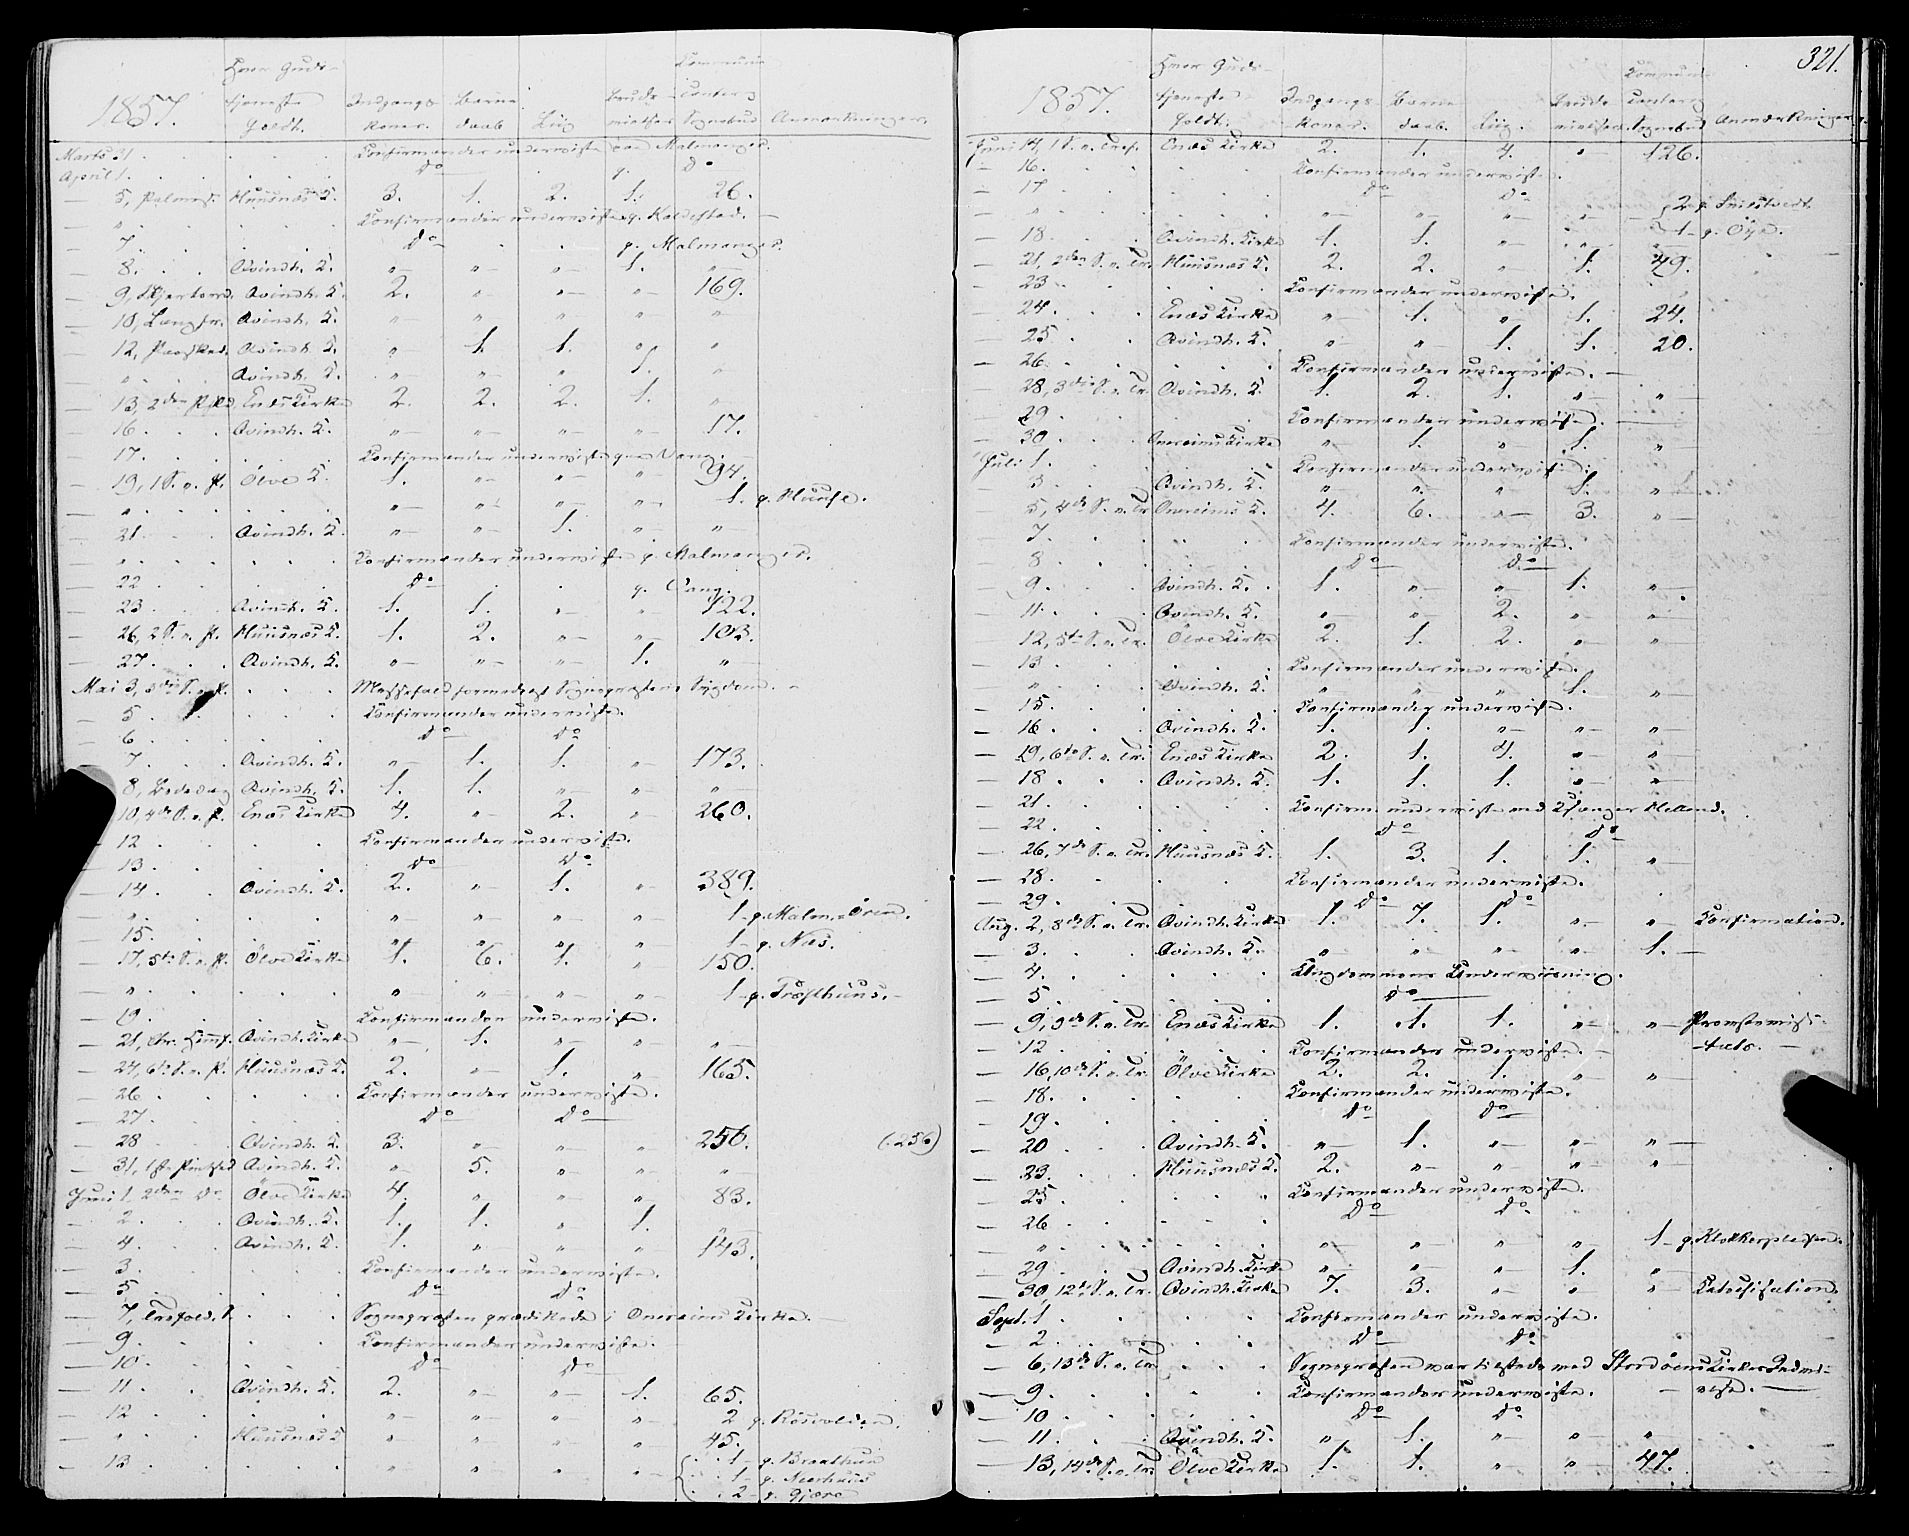 1857.
Hvor Guds-
tjeneste
holdt.
Indgangs-
koner.
Barne-
daab
Liig
Brude-
vielser
Communi-
canter og
Sognebud
Anmærkninger.
Marts 31. Confirmander underviste paa Malmanger.
April 1. Do g. Do
5, Palmes. Huusnæs K. 3. 1. 2. 1. 26.
" Confirmander underviste g. Kaldestad.
7. Do g. Malmanger.
8. Qvindh. K. " " " 1. "
9, Skjertorsd. Qvindh. K. 2. " " " 169.
10, Langfr. Qvindh. K. " " " " "
12, Paasked. Qvindh. K. " 1. 1. " "
" Qvindh. K. " " " 1. "
13, 2den Pskd. Enæs Kirke 2. 2. 2. 1. "
16. Qvindh. K. " " " " 17.
17. Confirmander underviste paa Vang.
19, 1 S. e. P. Ölve K. 1. " " " 94.
" " " " " 1. g. Huuse.
21. Qvindh. K. " " 1. " "
" Confirmander underviste g. Malmanger.
22 Do g. Vang.
23 Qvindh. K. 1. 1. " " 122.
26, 2 S. e. P. Huusnæs K. 1. 2. " " 103.
27. Qvindh. K. " " " 1. "
Mai 3, 3die S. e. P. Messefald formedelst Sognepræstens Sygdom.
5 Confirmander underviste.
6 Do Do
7 Qvindh. K. " 1. 1. " 173.
8, Bededag Qvindh. K. 1. 1. " " "
10, 4de S. e. P. Enæs Kirke 4. " 2. " 260.
12 Confirmander underviste.
13. Do Do
14. Qvindh. K. 2. " 1. " 389.
" " " " " 1 g. Malm. Ören.
15. " " " " 1 g. Næs.
17, 5te S. e. P. Ölve Kirke 1. 6. 1. " 150.
" " " " " 1 g. Træsthuus.
19. Confirmander underviste.
21, Chr. Himf. Qvindh. Kirke " 1. " " "
24, 6te S. e. P. Huusnæs K. 2. " 1. " 165.
26 Confirmander underviste.
27. Do Do
28 Qvindh. K. 3. " " " 256. (:256)
31, 1ste Pintsed. Qvindh. K. " 5. " " "
Juni 1. 2den Do Ölve Kirke 4. " " " 83.
2. Qvindh. K. 1. 1. " 1.
4. Qvindh. K. 1. " " " 143.
3. Confirmander underviste.
5 Do Do
7, Trefold. S. Sognepræsten prædikede i Onereims Kirke.
9. Confirmander underviste.
10. Do Do
11. Qvindh. K. 2. " " 1. 65.
12 " " " " 2 g. Rösvolden.
" Huusnæs K " " " " 45.
13. " " " " 1 g. Breathun
1 g. Neerhuus
2 g. Gjære
321.
1857.
Hvor Guds-
tjeneste
holdt.
Indgangs-
koner.
Barne-
daab.
Liig.
Brude-
vielser.
Communi-
canter og
Sognebud
Anmærkninger.
Juni 14, 1 S. e. Tref. Enæs Kirke 2. 1. 4. " 126.
16. Confirmander underviste.
17 Do Do
" " " " " 2 g.
18. Qvindh. Kirke 1. 1. " " 1 g. Öye.
21, 2den S. e. Tr. Huusnæs K. 2. 2. " 1. 49.
23 Confirmander underviste.
24. Enæs Kirke " 1. " 1. 24.
25. Qvindh. K. " " 1. 1. 20.
26. Confirmander underviste.
28, 3die S. e. Tr. Qvindh. K. 1. 2. 1. " "
29. Confirmander underviste.
30. Onereims Kirke " 1. " 1. "
Juli 1. Confirmander underviste.
3. Qvindh. K. " " " 1. "
5, 4de S. e. Tr. Onereims K. 4. 6. " 3. "
7. Confirmander underviste.
8 Do Do
9. Qvindh. K. 1. " " 1. "
11. Qvindh. K. " " 2. " "
12, 5te S. e. Tr. Ölve Kirke 2. 1. 2. " "
13 Confirmander underviste.
" Qvindh. K. " " " 1. "
15. Confirmander underviste.
16 Qvindh. K. 1. 1. " " "
19, 6te S. e. Tr. Enæs Kirke 2. 1. 4. " "
18 Qvindh. K. 1. 1. 1. " "
21. Confirm. underviste ved Kfanger Helland.
22. Do Do
26, 7de S. e. Tr. Huusnæs K. 1. 3. 1. 1. "
28. Confirmander underviste.
29. Do Do
Aug. 2, 8de S. e. Tr. Qvindh. Kirke 1. 7. 1. " " Confirmation.
3. Qvindh. K. " " " " 1.
4. Ungdommens Underviisning.
5 Do
9, 9de S. e. Tr. Enæs Kirke 1. 1. 1. " " Provstevisi-
12. Confirmander underviste. -tats.
16, 10de S. e. Tr. Ölve Kirke 2. 2. 1. " "
18. Confirmander underviste.
19. Do Do
20 Qvindh. K. " 1. " " "
23. Huusnæs K. 2. " " " "
25 Confirmander underviste.
26 Do Do
" " " " " 1 g. Klokkerpladsen.
29 Qvindh. Kirke " " " 1. "
30, 12te S. e. Tr. Qvindh. Kirke 7. 3. " " " Katechisation.
Sept. 1 Confirmander underviste.
2 Do Do
6, 13de S. e. Tr. Sognepræsten var tilstede ved Stordöens Kirkes Indvi-
9. Confirmander underviste. else.
10 Do Do
11. Qvindh. K. " 1. " " "
13, 14de S. e. Tr. Ölve Kirke 1. 1. " " 47.